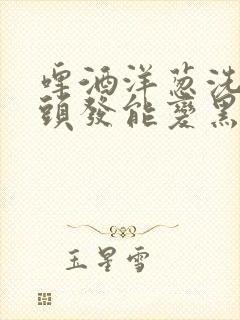 啤酒洋葱洗
頭發能變黑
玉星雪